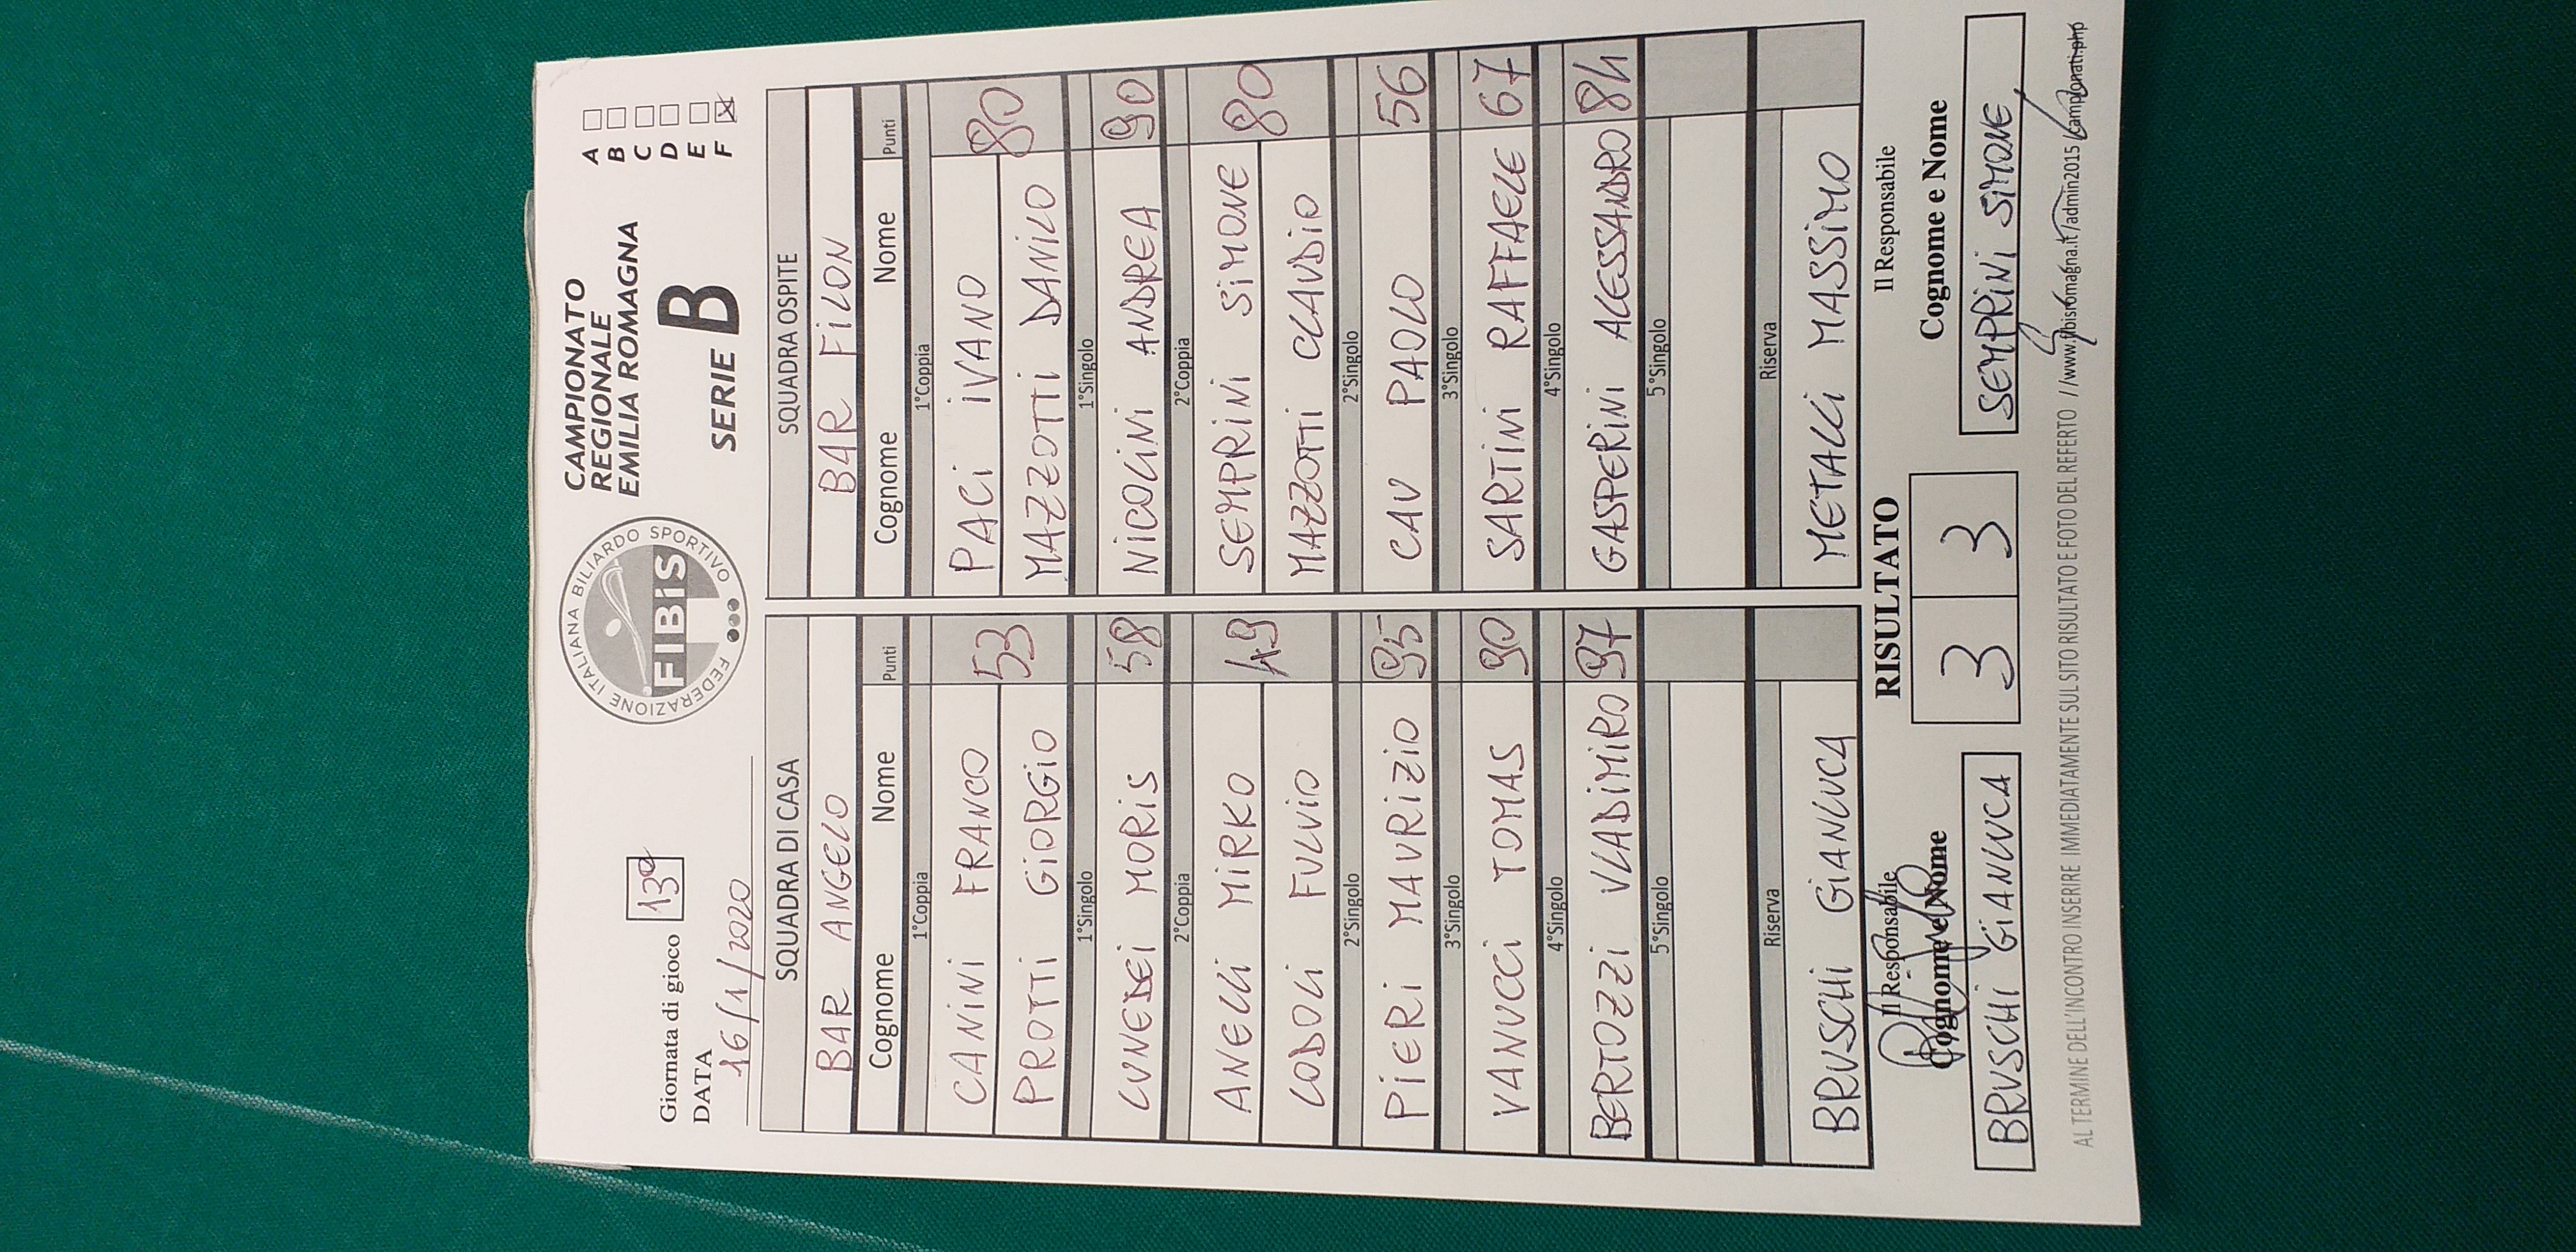 FEDERAZIONE ITALIANA BILIARDO SPORTIVO
FIBiS
CAMPIONATO
REGIONALE
EMILIA ROMAGNA
SERIE B
A
B
C
D
E
F
Giornata di gioco 13ª
DATA
16/1/2020
SQUADRA DI CASA SQUADRA OSPITE
BAR ANGELO BAR FILON
Cognome Nome Punti Cognome Nome Punti
1°Coppia 1°Coppia
CANINI FRANCO PACI IVANO
53 80
PROTTI GIORGIO MAZZOTTI DANILO
1°Singolo 1°Singolo
LUNEDEI MORIS 58 NICOLINI ANDREA 90
2°Coppia 2°Coppia
ANELLI MIRKO SEMPRINI SIMONE
49 80
LODOLI FULVIO MAZZOTTI CLAUDIO
2°Singolo 2°Singolo
PIERI MAURIZIO 95 CAV PAOLO 56
3°Singolo 3°Singolo
VANUCCI TOMAS 90 SARTINI RAFFAELE 67
4°Singolo 4°Singolo
BERTOZZI VLADIMIRO 97 GASPERINI ALESSANDRO 84
5°Singolo 5°Singolo
Riserva Riserva
BRUSCHI GIANLUCA METALLI MASSIMO
Il Responsabile RISULTATO Il Responsabile
Cognome e Nome 3 3 Cognome e Nome
BRUSCHI GIANLUCA SEMPRINI SIMONE
AL TERMINE DELL'INCONTRO INSERIRE IMMEDIATAMENTE SUL SITO RISULTATO E FOTO DEL REFERTO //www.fibisromagna.it/admin2015/campionati.php